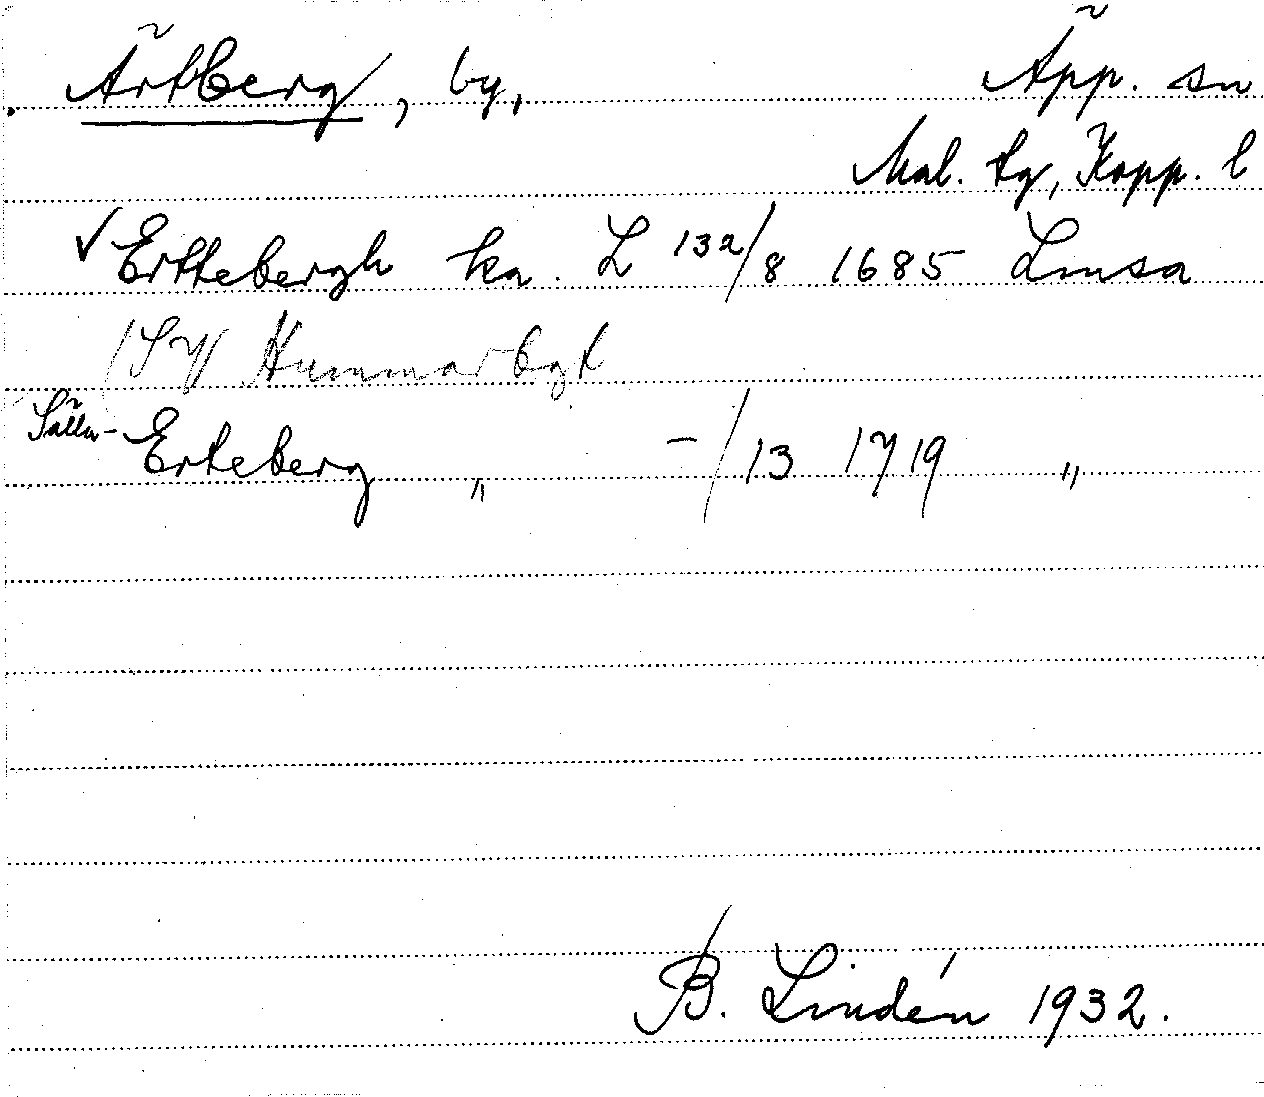 Ärtberg, by, Äpp. sn
Mal. tg, Kopp. l
✓ Erttebergh ka. L 132/8 1685 Lmsa
(SV Hummarbgt
Sälla- Erteberg " -/13 1719 "
B. Lindén 1932.